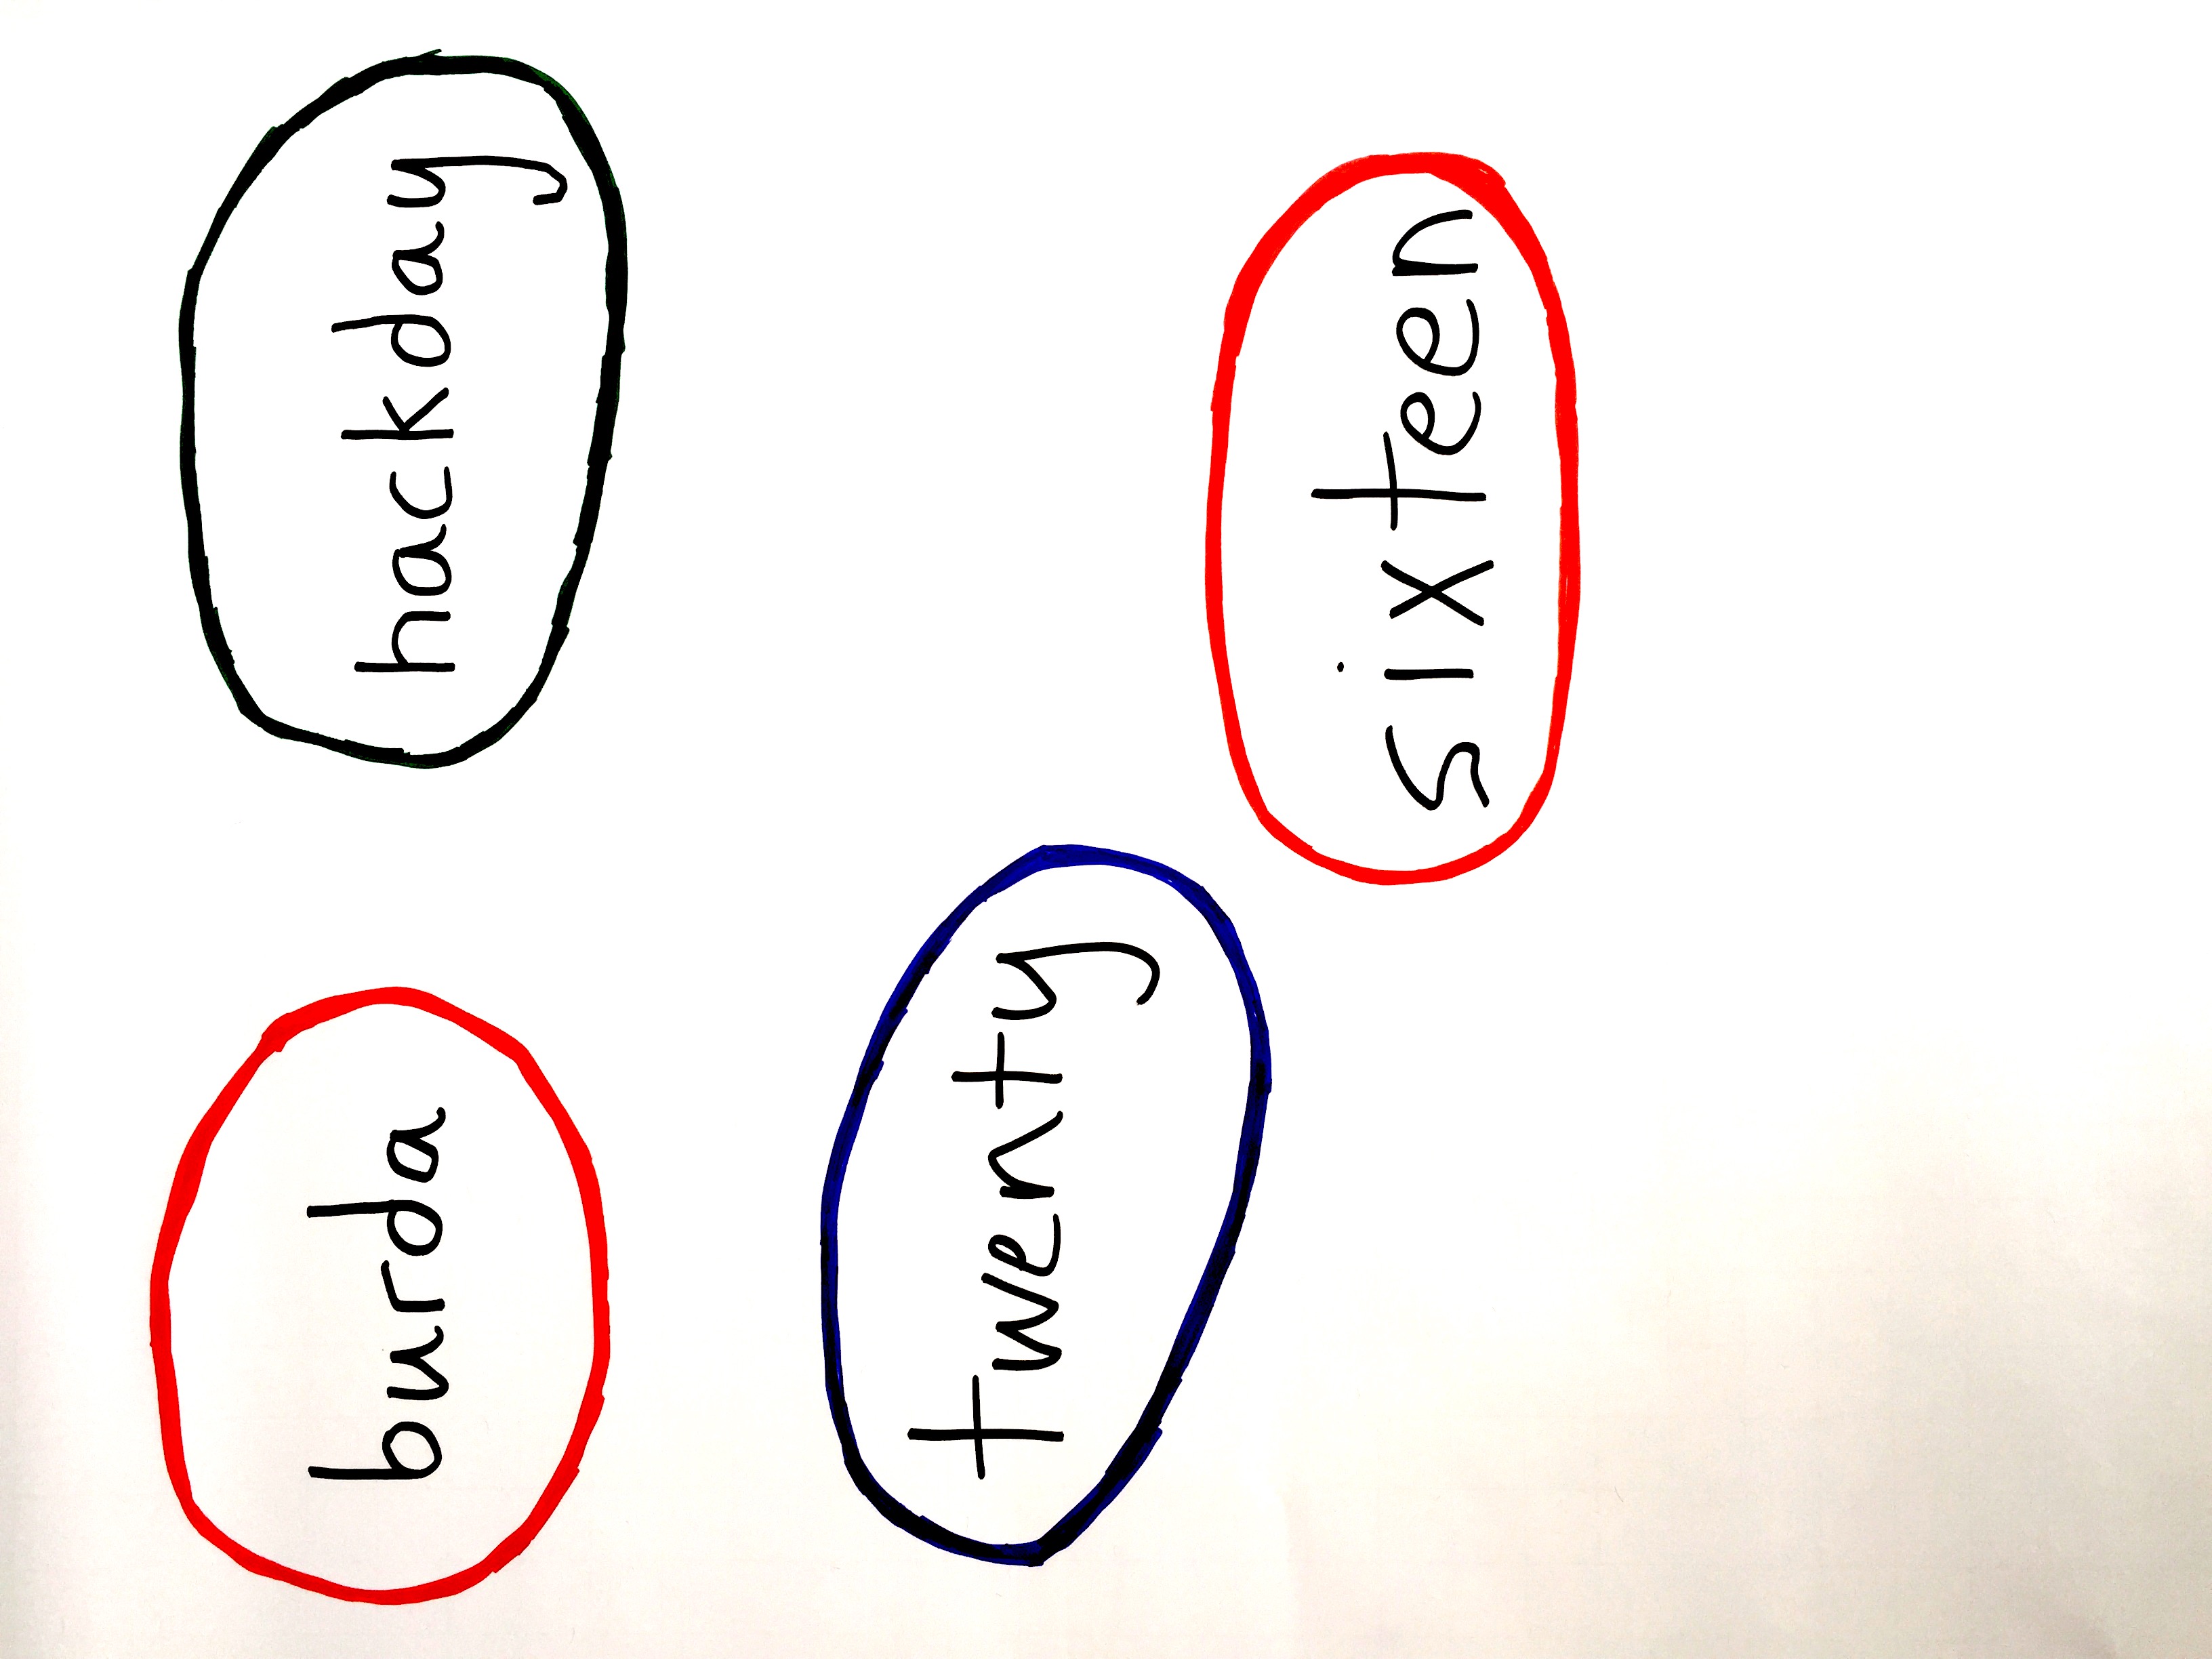 burda
hackday
twenty
sixteen